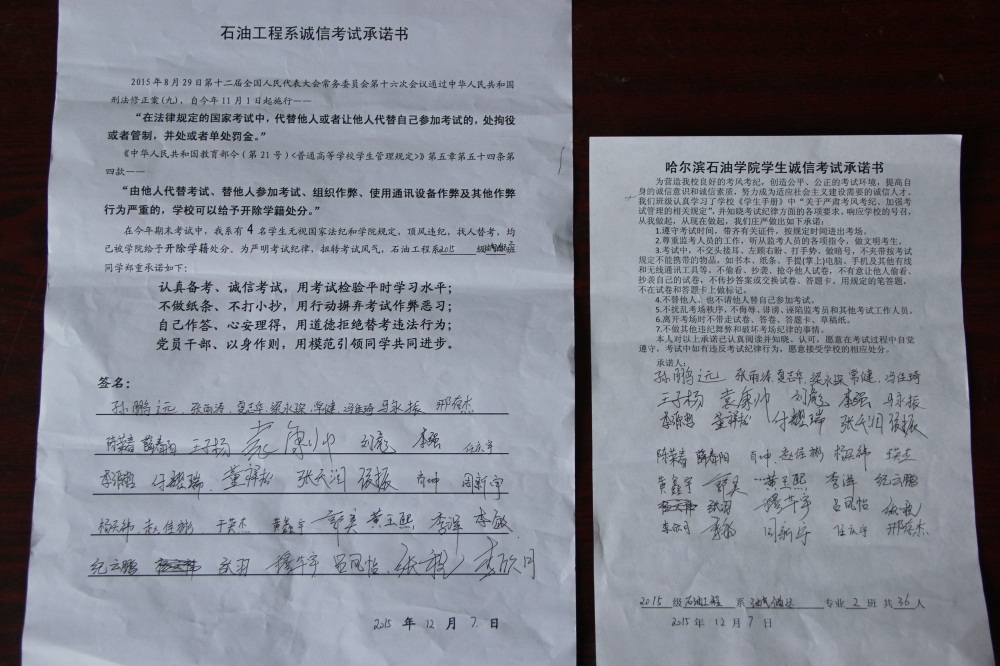 石油工程系诚信考试承诺书
2015年8月29日第十二届全国人民代表大会常务委员会第十六次会议通过中华人民共和国
刑法修正案(九)，自今年11月1日起施行——
“在法律规定的国家考试中，代替他人或者让他人代替自己参加考试的，处拘役
或者管制，并处或者单处罚金。”
《中华人民共和国教育部令（第21号）<普通高等学校学生管理规定>》第五章第五十四条第
四款——
“由他人代替考试、替他人参加考试、组织作弊、使用通讯设备作弊及其他作弊
行为严重的，学校可以给予开除学籍处分。”
在今年期末考试中，我系有4名学生无视国家法纪和学院规定，顶风违纪，找人替考，均
已被学院给予开除学籍处分。为严明考试纪律，扭转考试风气，石油工程系2015级班
同学郑重承诺如下：
认真备考、诚信考试，用考试检验平时学习水平；
不做纸条、不打小抄，用行动摒弃考试作弊恶习；
自己作答、心安理得，用道德拒绝替考违法行为；
党员干部、以身作则，用模范引领同学共同进步。
签名：
孙鹏远 张雨涛 夏志华 梁永琛 常健 冯佳琦 马永振
陈荣春 薛春阳 王子杨 袁康帅 刘彪 李强
李源懋 付耀瑞 董祥松 张天润 侯振 肖坤 周新宇
杨天纬 赵佳彬 黄鑫宇 郭奕 黄玉熙 李洋 李敏
纪云鹏 张羽 穆华宇 吕凤怡
2015年12月7日
哈尔滨石油学院学生诚信考试承诺书
为营造我校良好的考风考纪，创造公平、公正的考试环境，提高自
身的诚信意识和诚信素质，努力成为适应社会主义建设需要的诚信人才。
我们班级认真学习了学校《学生手册》中“关于严肃考风考纪、加强考
试管理的相关规定”，并知晓考试纪律方面的各项要求。响应学校的号召，
从我做起，从现在做起，我们庄严做出如下承诺：
1.遵守考试时间，带齐有关证件，按规定时间进出考场。
2.尊重监考人员的工作，听从监考人员的各项指令，做文明考生。
3.考试中，不交头接耳、左顾右盼、打手势、做暗号，不夹带按考试
规定不能携带的物品，如书本、纸条、手提(掌上)电脑、手机及其他有线
和无线通讯工具等。不偷看、抄袭、抢夺他人试卷，不有意让他人偷看、
抄袭自己的试卷，不传抄答案或交换试卷、答题卡。用规定的笔答题，
不在试卷和答题卡上做标记。
4.不替他人、也不请他人替自己参加考试。
5.不扰乱考场秩序，不侮辱、诽谤、诬陷监考员和其他考试工作人员。
6.离开考场时不带走试卷、答卷、答题卡、草稿纸。
7.不做其他违纪舞弊和破坏考场纪律的事情。
本人对以上承诺已认真阅读并知晓、认可，愿意在考试过程中自觉
遵守，考试中如有违反考试纪律行为，愿意接受学校的相应处分。
承诺人：
孙鹏远 张雨涛 夏志华 梁永琛 常健 冯佳琦
王子杨 袁康帅 刘彪 李强 马永振
李源懋 董祥松 付耀瑞 张天润 侯振
陈荣春 薛春阳 肖坤 赵佳彬 杨天纬
黄鑫宇 郭奕 黄玉熙 李洋 纪云鹏
张羽 穆华宇 吕凤怡
李敏 周新宇
2015级石油工程系专业2班共36人
2015年12月7日